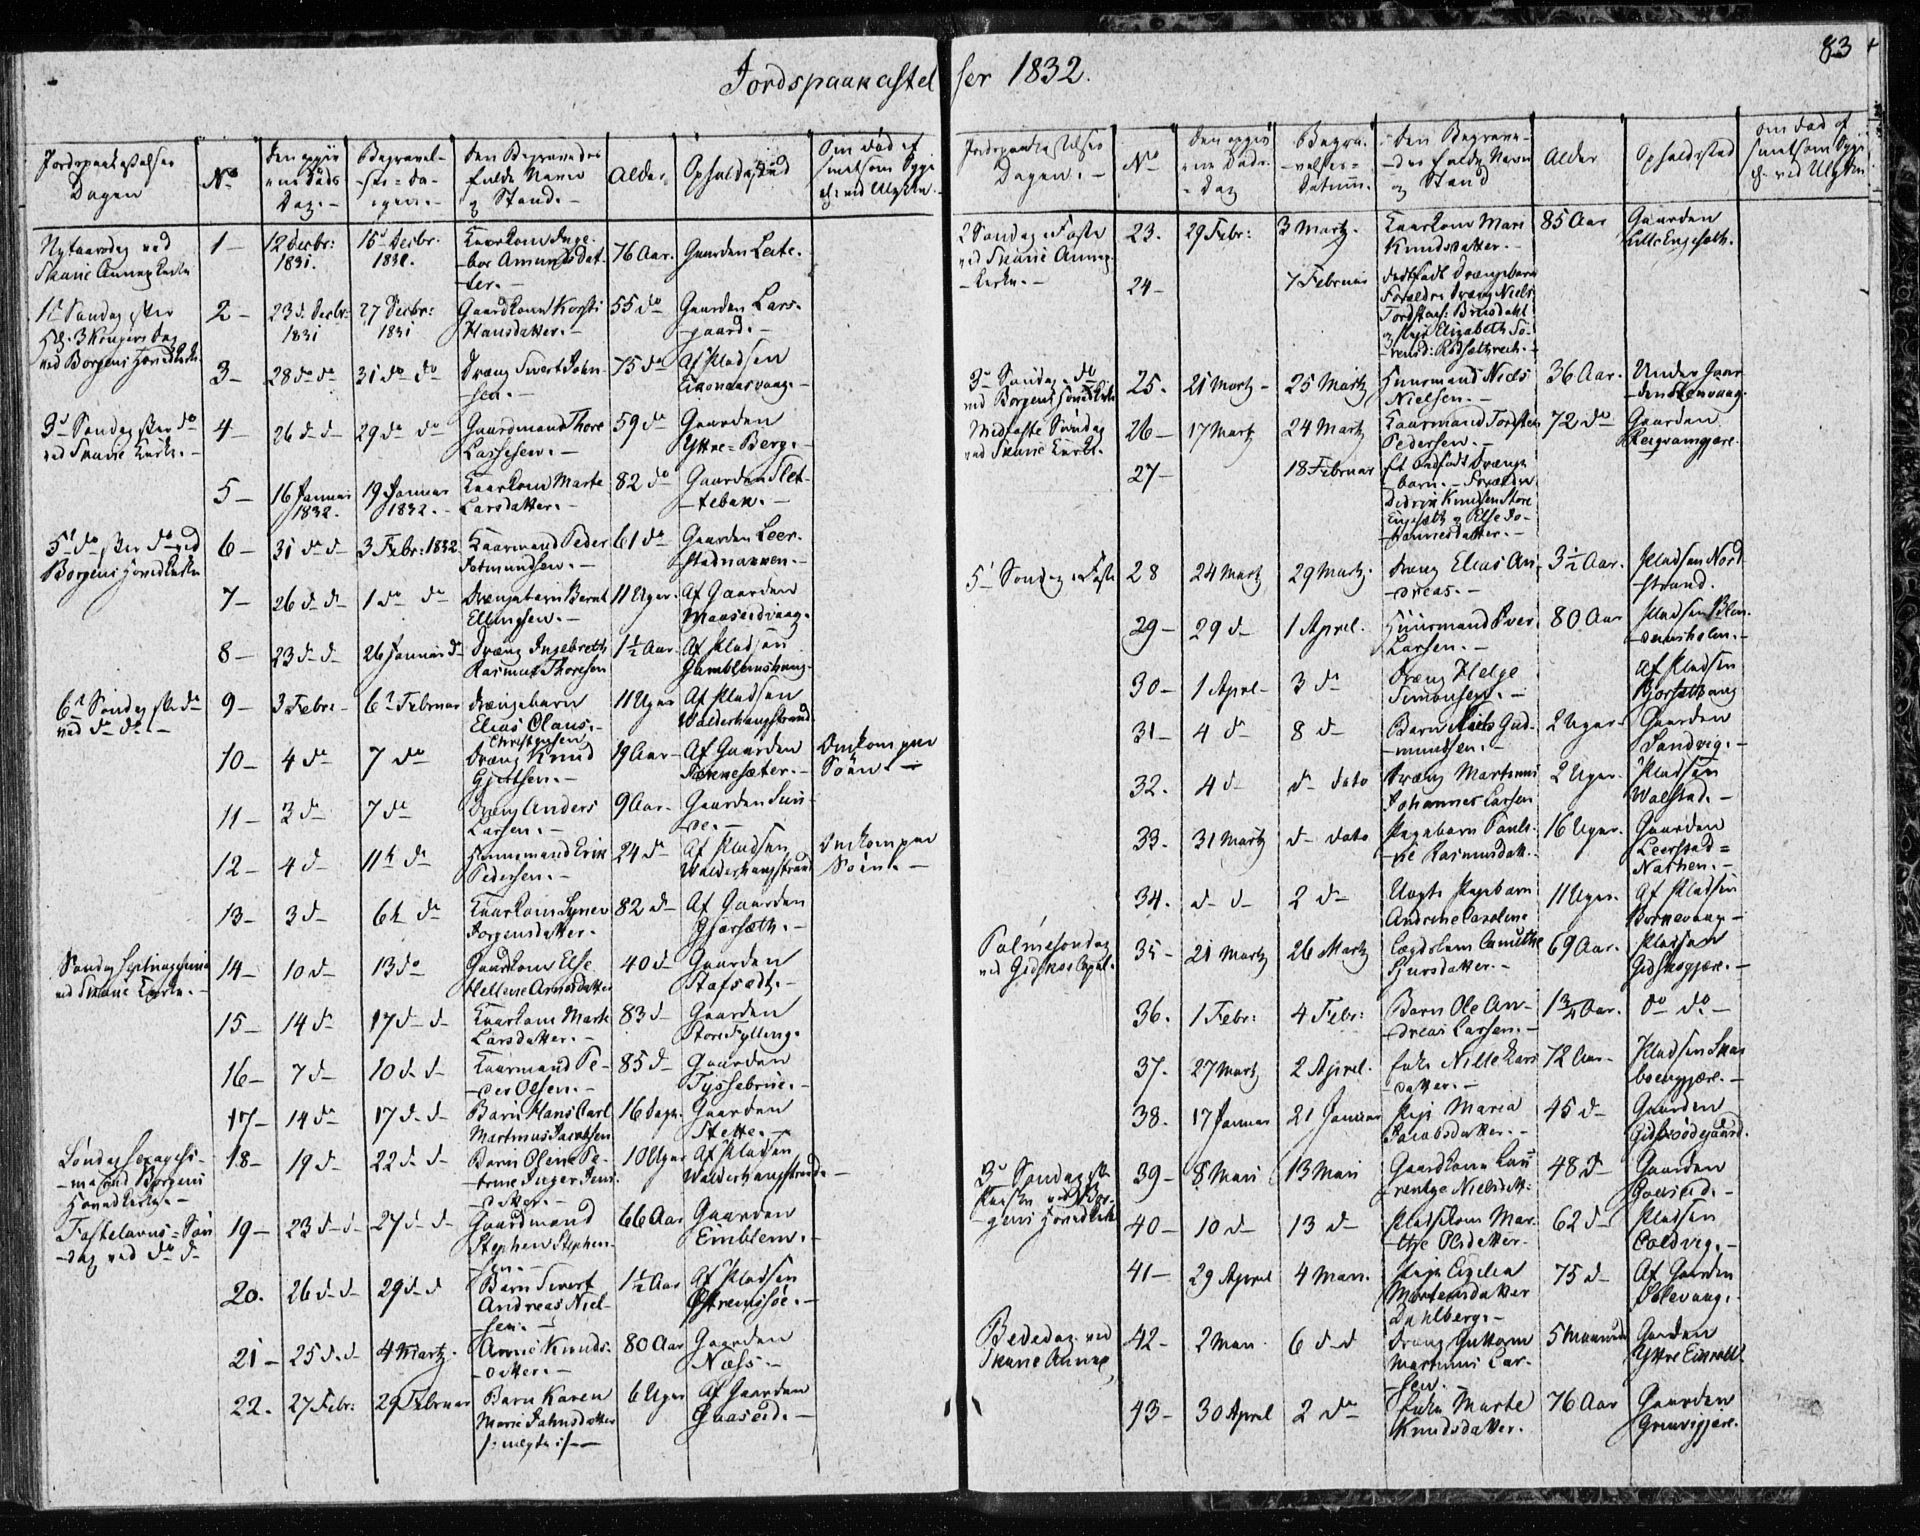 83
Jordspaakastelser 1832.
Jordspaakastelses Dagen
No
Den opgivne Døds Dag.
Begravelses-dagen.
Den Begravedes fulde Navn og Stand.
Alder
Opholdssted
Om død af smitsom Syge el. ved Ulykke
Nytaarsdag ved Skarie Annex Kirke
1 – 12 Decbr: 1831. 15d Decbr. 1831. Kaarkone Ingebor Amundsdatter. – 76 Aar. Gaarden Leite. –
1ste Søndag efter H. 3 Kongers Dag ved Borgens Hovedkirke
2 – 23d. Decbr: 1831 27 Decbr: 1831 Gaardkone Kirsti Hansdatter. – 55 do Gaarden Larsgaard. –
3 – 28 do do 31 do do Dreng Sivert Johnsen. – 75 do Af Pladsen
3d Søndag efter do ved Skarie Kirke. –
4 – 26 d d 29 do do Gaardmand Thore Lassesen. – 59 do Gaarden Yttre-Berg. –
5 – 16 Januar 1832. 19 Januar 1832. – Kaarkone Marte Larsdatter. – 82 do Gaarden Slettebak. –
5t do efter do ved Borgens Hovedkirke
6 – 31 do d 3 Febr: 1832. Kaarmand Peder 61 do Gaarden Leerstadnakken. –
7 – 26 d d 1 do do Drengebarn Bernt Ellingsen. – 11 Uger. Af Gaarden Maaseidvaag.
8 – 23 d d 26 Januar d Dreng Ingebreth Rasmus Thoresen 1½ Aar. Af Pladsen Gamblemshaug.
6t Søndag efter do ved do do –
9 – 3 Febr. 6t Februar Drengebarn Elias Claus Christensen 11 Uger Af Pladsen Walderhaugstrand
10 – 4 do 7 do Dreng Knud Gjertsen. – 19 Aar – Af Gaarden Tennesæter. – Omkom paa Søen. –
11 – 3 do 7 do Dreng Anders Larsen. – 9 Aar. – Gaarden Sunde. –
12 – 4 d 11t do Huusmand Erik Pedersen. – 24 do Af Pladsen Walderhaugstrand Omkom paa Søen. –
13 – 3 d 6t do Kaarkone Synev Jorgensdatter. 82 d Af Gaarden Gjørsæth. –
Søndag Septuagesima ved Skarie Kirke. –
14 – 10 d 13 do Gaardkone Else Hellene Arnesdatter 40 d Gaarden Stafsædt. –
15 – 14 d 17 d d Kaarkone Marte Larsdatter. – 83 d Gaarden Store Fylling.
16 – 7 d 10 d d Kaarmand Peder Olsen. – 85 d Gaarden Tyssebrue. –
17 – 14 do 17 d d Barn Hans Carl Martinus Jacobsen 16 Dage. Gaarden Stette. –
Søndag Sexagesima ved Borgens Hovedkirke. –
18 – 19 d 22 d d Barn Olene Petrine Inger Jensdatter. – 10 Uger Af Pladsen Walderhaugstrand –
Fastelavns-Søndag ved do d
19 – 23 d d 27 d d Gaardmand Stephen Stephensen. – 66 Aar Gaarden Emblem. –
20. 26 d d 29 d d Barn Sivert Andreas Nielsen. – 1½ Aar Af Pladsen
21 – 25 d d 4 Martz. Anne Knudsdatter. – 80 Aar Gaarden Næss. –
22. 27 Febr: 29 Februar Barn Karen Marie Johnsdatter 6 Uger Af Gaarden Gaaseid. –
Jordspaakastelses Dagen. –
No
Den opgivne Døds-Dag
Begravelses-Datum.
Den Begravedes fulde Navn og Stand
Alder
Opholdssted
Om død af smitsom Syge el. ved Ulykke
2 Søndag i Faste ved Skarie Annex Kirke. –
23. 29 Febr: 3 Martz. Kaarkone Mari Knudsdatter. – 85 Aar Gaarden Lille Engeseth.
24 – 7 Februar Dødfødt Drengebarn Forældre Dreng Niels Brusdahl og Pige Elizabeth
3d Søndag do ved Borgens Hovedkirke
25. 21 Martz – 25 Martz Huusmand Niels Nielsen. – 36 Aar. Under Gaarden
Midfaste Søndag ved Skarie Kirke.
26 – 17 Martz 24 Martz Kaarmand Torsten Pedersen. – 72 do Gaarden
27 – 18 Februar Et dødfødt Drengebarn. – Forældre Didrik Knudsen Store Engesæth og Else Johannesdatter. –
5t Søndag i Faste
28 24 Martz 29 Martz. Dreng Elias Andreas. – 3½ Aar. Pladsen Nordstrand.
29 – 29 d 1 April. Huusmand Iver Larsen. – 80 Aar Pladsen
30 – 1 April – 3 do Dreng Helge Simonsen. – Af Pladsen
31 – 4 d 8 d Barn Gudmundsen. – 2 Uger – Gaarden Sandvig. –
32. 4 d d dato Dreng Martinus Johannes Larsen 2 Uger. Pladsen Walstad. –
33. 31 Martz d dato Pigebarn Rasmusdatt. 16 Uger. Gaarden Leerstad-Nakken. –
34. d d 2 d Uægte Pigebarn Andrine Caroline 11 Uger. Af Pladsen
Palmesøndag ved Gidskøe Capel.
35 – 21 Martz 26 Martz Sjursdatter. – 69 Aar. Pladsen Gidskøgjære. –
36. 1 Febr: 4 Febr: Barn Ole Andreas Larsen. – 1¾ Aar. do do –
37. 27 Martz 2 April. Enke Nille Larsdatter. – 72 Aar – Pladsen
38. 17 Januar 21 Januar Pige Maria Jacobsdatter. – 45 d Gaarden
3d Søndag eft. Paaske ved Borgens Hovedkirke
39 – 8 Mai 13 Mai Gaardkone Laurentze Nielsdtt: 48 d Gaarden Gaaseid. –
40 – 10 d 13 d Pladskone Marthe Olsdatter. 62 d Pladsen Coldvig. –
41 – 29 April 4 Mai. Pige Mortensdatter Dahlberg. – 75 d Af Gaarden
Bededag ved Skarie Annex
42 – 2 Mai. 6 d d Dreng Guttorm Martinus Larsen. – 5 Maaneder Gaarden Yttre
43 – 30 April 2 do Enke Marte Knudsdatter. 76 Aar Gaarden